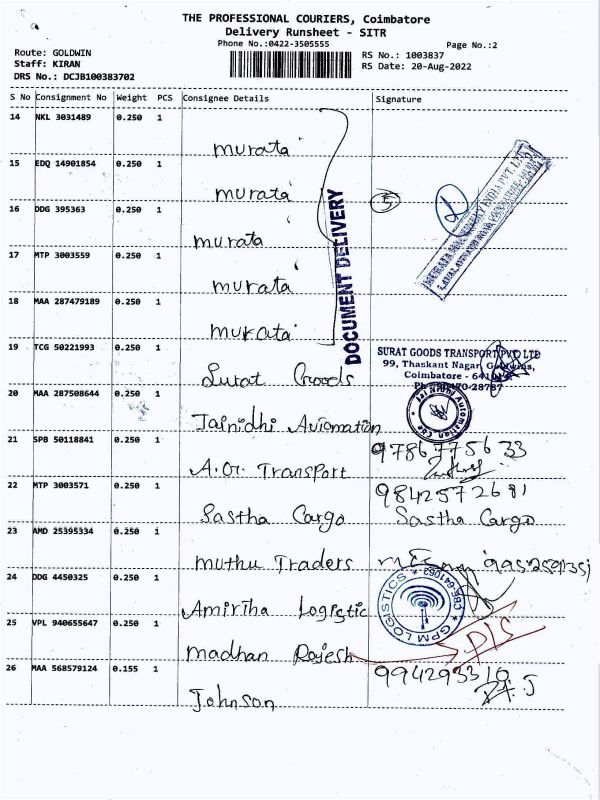 THE PROFESSIONAL COURIERS, Coimbatore
Delivery Runsheet - SITR
Phone No.:0422-3505555
Page No.:2
Route: GOLDWIN
RS No.: 1003837
Staff: KIRAN
RS Date: 20-Aug-2022
DRS No.: DCJB100383702
S No Consignment No Weight PCS Consignee Details Signature
14 NKL 3031489 0.250 1 murata
15 EDQ 14901854 0.250 1 murata
16 DDG 395363 0.250 1 murata
17 MTP 3003559 0.250 1 murata
18 MAA 287479189 0.250 1 murata
DOCUMENT DELIVERY
19 TCG 50221993 0.250 1 Surat Goods
SURAT GOODS TRANSPORT PVT LTD
99, Thaskant Nagar, Goldwins,
Coimbatore - 641
20 MAA 287508644 0.250 1 Jainidhi Automation
Jai Nidhi Automation
21 SPB 50118841 0.250 1 A.G. Transport
9786775633
22 MTP 3003571 0.250 1 Sastha Cargo
9842572681
Sastha Cargo
23 AMD 25395334 0.250 1 muthu Traders
24 DDG 4450325 0.250 1 Amirtha Logistic
GPM LOGISTICS * CBE-641062 *
25 VPL 940655647 0.250 1 madhan Rajesh
D/S
26 MAA 568579124 0.155 1 Johnson
994293310